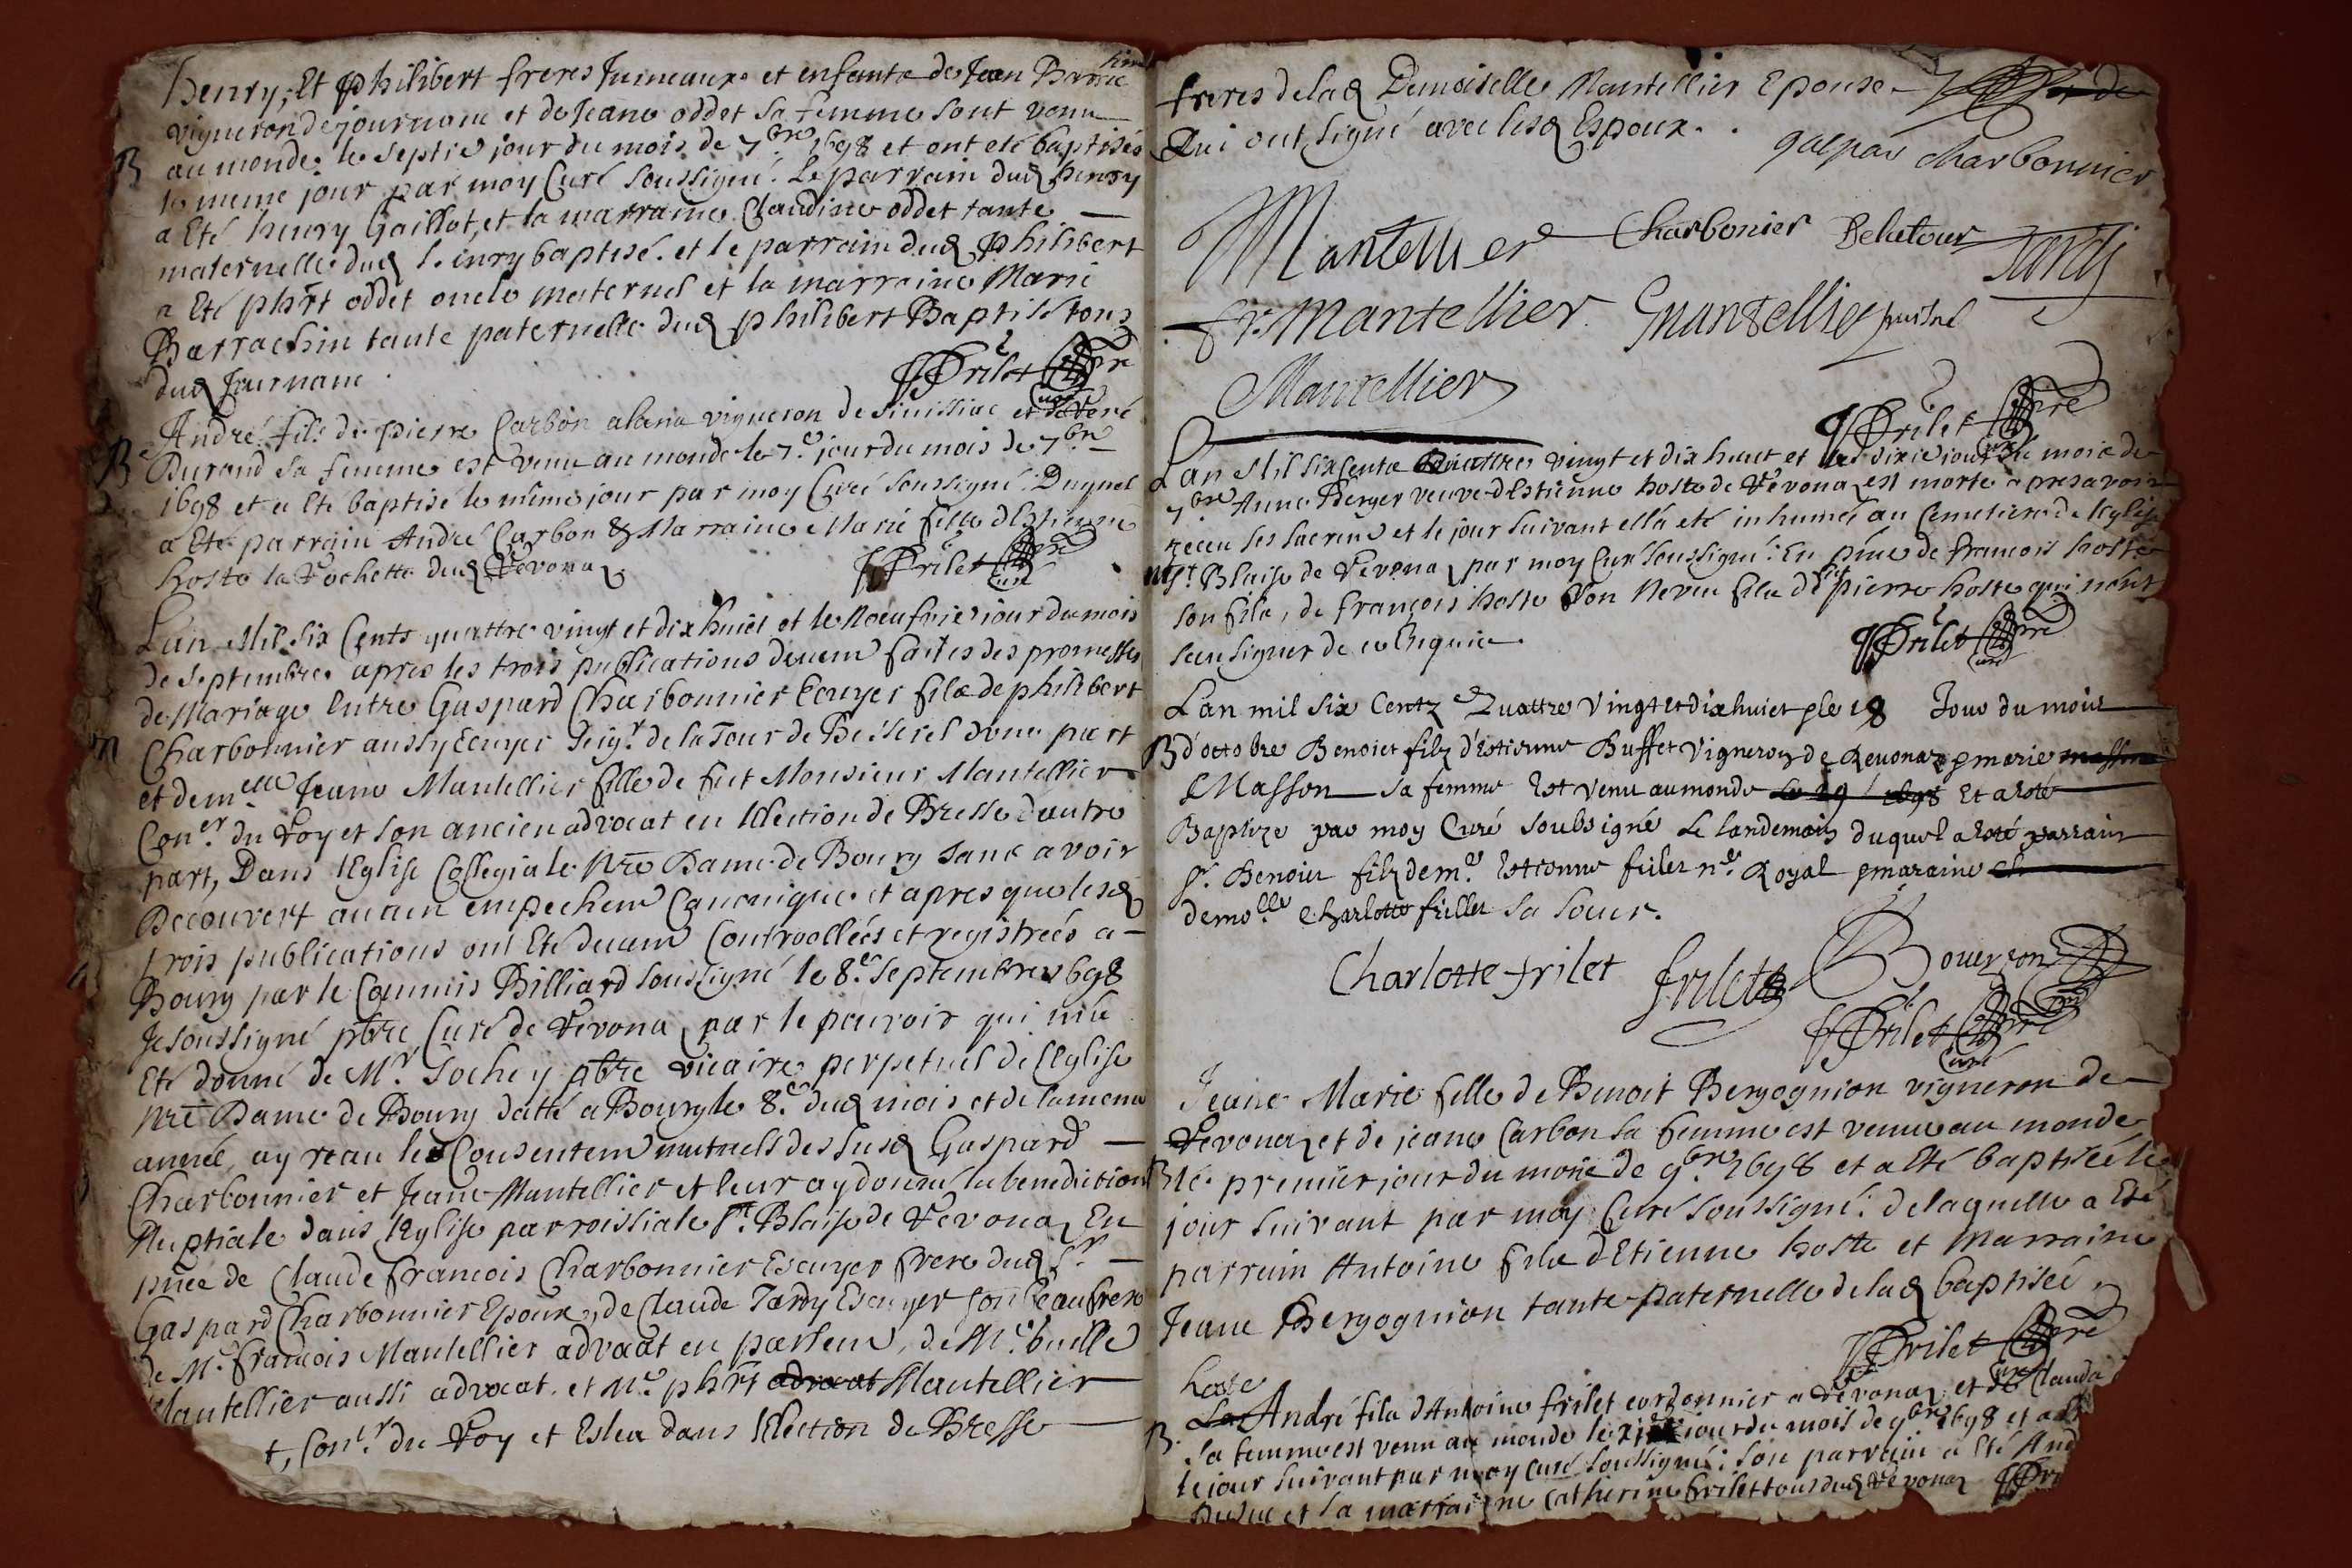 henry, Et philibert freres Jumeaux et enfants de Jean
vigneron de journans et de Jeane oddet sa femme sont venu
B au monde le septie jour du mois de 7bre 1698 et ont eté baptisés
le meme jour par moy Curé soussigné. Le parrain dud henry
a Eté henry Gaillot, et la marraine Claudine oddet tante
maternelle dud henry baptisé. et le parrain dud philibert
a Eté phirt oddet oncle maternel et la marraine Marie
Barrachin tante paternelle dud philibert Baptisé tous
dud Journans.
JFrilet pre
Curé
André fils de pierre Carbon vigneron de et de
B Durand sa femme est venu au monde le 7.e jour du mois de 7bre
1698 et a Eté baptisé le même jour par moy Curé soussigné. Duquel
a Eté parrain André Carbon & Marraine Marie fille dEstienne
hoste la Rochette dud Revonaz.
JFrilet pre
Curé
Lan Mil six Cents quattre vingt et dix huict et le Noeufvie jour du mois
de Septembre apres les trois publications deuem faites des promesses
de Mariage Entre Gaspard Charbonnier Ecuyer fils de philibert
Charbonnier aussy Ecuyer Seigr de la Tour de Besserel dune part
et demelle Jeane Mantellier fille de feit Monsieur Mantellier
Coner du Roy et son ancien advocat en lElection de Bresse dautre
part, Dans lEglise Collegiale Nre Dame de Bourg sans avoir
Decouvert aucun empechem Canonique et apres que lesd
trois publications ont Eté deuem Controollées et registrées a
Bourg par le Commis Billiard soussigné le 8.e Septembre 1698
Je soussigné pbre Curé de Revonaz par le pouvoir qui mà
Eté donné de Mr. Sochey pbre vicaire perpetuel de lEglise
Nre Dame de Bourg datté a Bourg le 8.e dud mois et de la meme
année, ay receu les Consentem mutuels des susd Gaspard
Charbonnier et Jeane Mantellier et leur ay donné la benediction
Nuptiale dans lEglise parroissiale St. Blaise de Revonaz En
pnce de Claude francois Charbonnier Escuyer frere dud Sr
Gaspard Charbonnier Epoux, de Claude Tardy Escuyer son beaufrere
de Me francois Mantellier advocat en parlem, de Me
Mantellier aussi advocat. et Me phirt advocat Mantellier
Coner. du Roy et Esleu dans lElection de Bresse
freres de lad Demoiselle Mantellier Epouse
Qui ont signé avec lesd Espoux.
gaspar charbonnier
Mantellier Charbonier Delatour Tardy
fr. Mantellier Mantellier
Mantellier
JFrilet pre
Lan Mil six Cents Quattre vingt et dix huict et le dixie jour du mois de
7bre Anne Berger veuve dEstienne hoste de Revonaz est morte apres avoir
receu ses sacrem et le jour suivant ella eté inhumée au Cemetiere de lEglise
St. Blaise de Revonaz par moy Curé soussigné. En pnce de francois hoste
son fils, de françois hoste son Neveu fils de pierre hoste qui nont
sceu signer de ce Enquis.
JFrilet pre
Curé
Lan mil six Centz Quattre Vingt et dixhuict & le 18 Jour du mois
B d'octobre Benoict filz d'Estienne Buffet Vigneron de Revonaz & marie
Masson sa femme Est venu au monde Et a esté
Baptize par moy Curé soubsigné Le landemain duquel a esté parrain
Sr. Benoict filz de me. Estienne frilet nre Royal & maraine
demolle Charlotte frillet sa soeur.
Charlotte frilet frilet Bouerson
JFrilet pre
Curé
Jeane Marie fille de Benoit Bergognion vigneron de
Revonaz et de jeane Carbon sa femme est venue au monde
B le premier jour du mois de 9bre 1698 et a Eté baptisée le
jour suivant par moy Curé soussigné. de laquelle a Eté
parrain Antoine fils dEtienne hoste et Marraine
Jeane Bergognion tante paternelle de lad baptisée.
JFrilet pre
Curé
hoste
B. André fils dAntoine frilet cordonnier a Revonaz et de Clauda
sa femme est venu au monde le jour du mois de 9bre 1698 et
le jour suivant par moy curé soussigné. son parrain a Eté And
et la marraine Catherine frilet tous dud Revonaz JFri